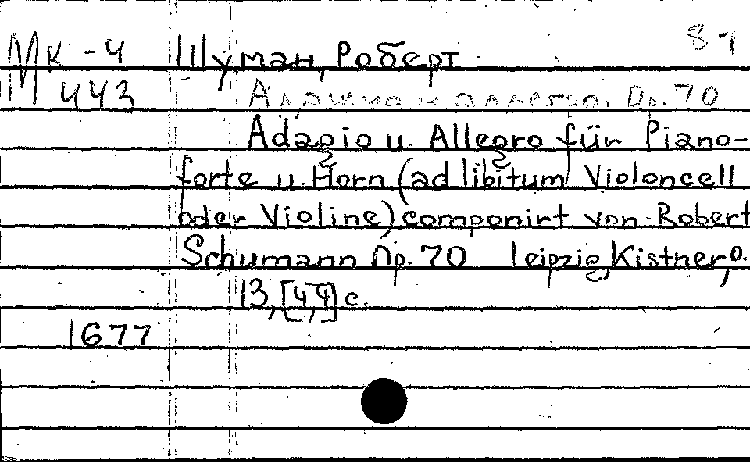 МК-4 Шуман, Роберт
443 Адажио и аллегро. Op. 70
Adagio u. Allegro für Piano-
forte u. Horn (ad libitum Violoncell
oder Violine) componirt von Robert
Schumann Op. 70 Leipzig, Kistner, o.
13, [4,4] с.
1677